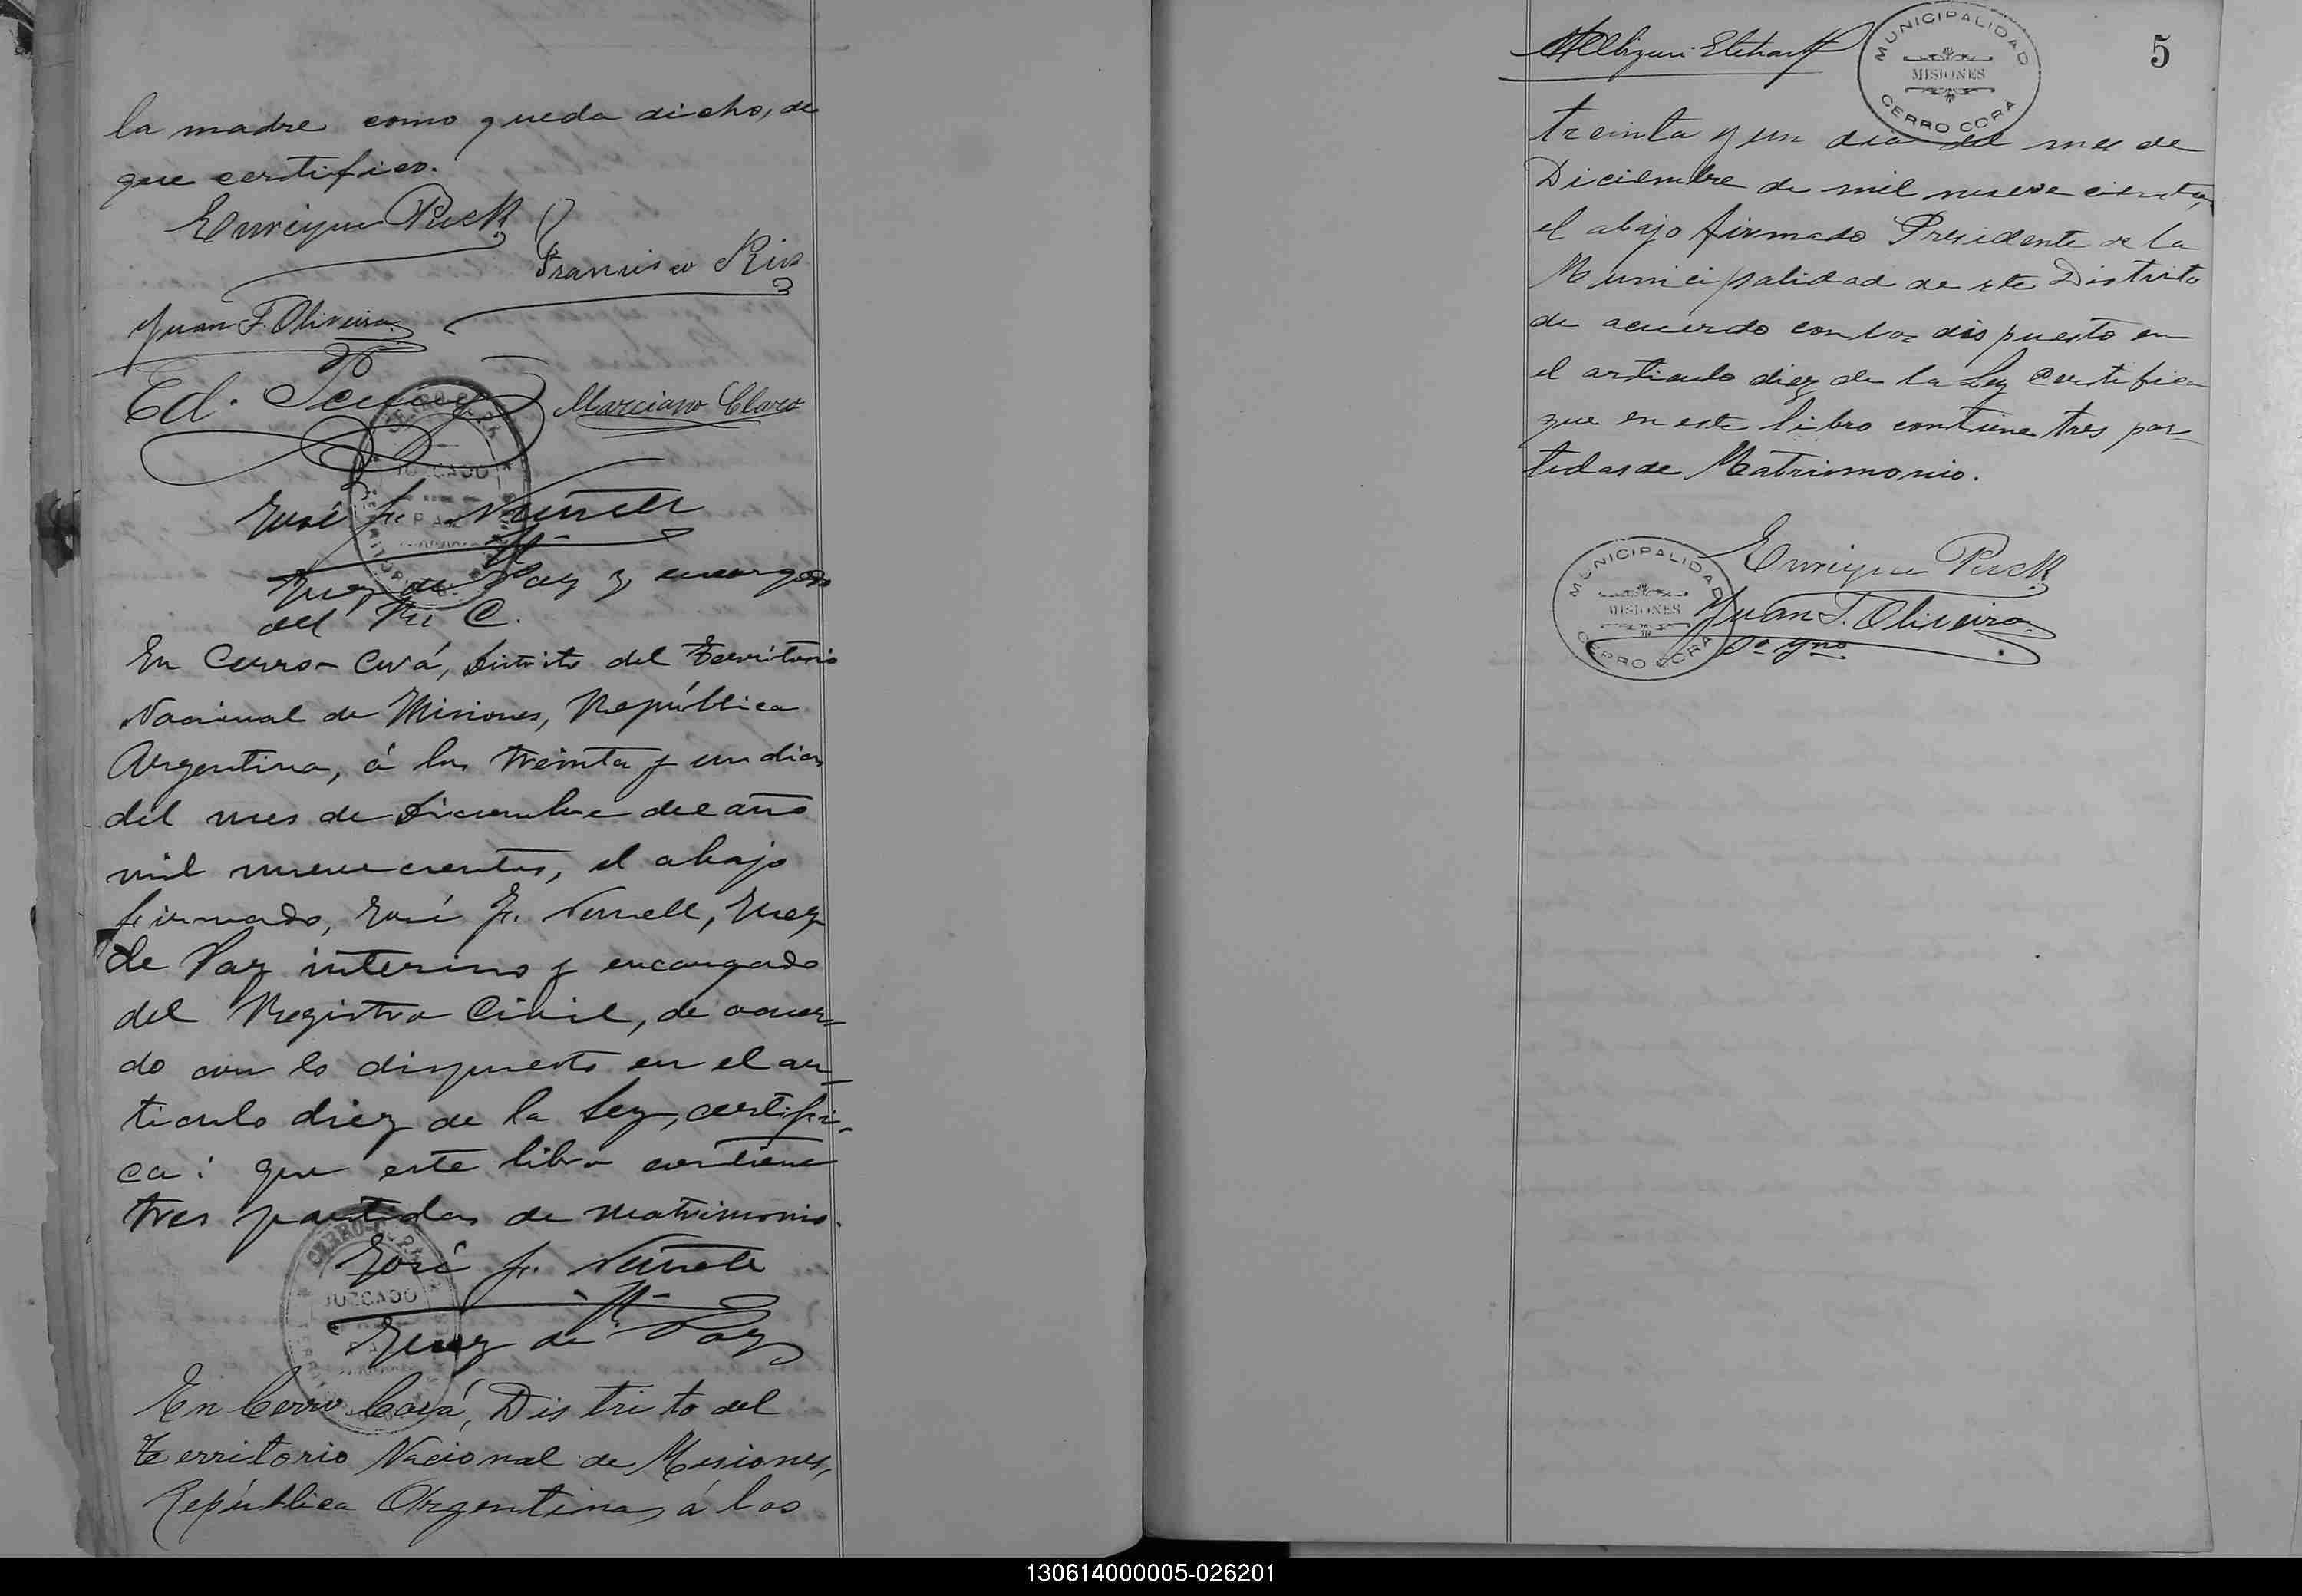 la madre como queda dicho, de
que certifico.
Enrique Puck
Francisco Rios
Juan F. Oliveira
Ed.
Marciano Claro
CERRO CORA
JUZGADO
PAZ
José F.
Juez de Paz y encargado
del Ri C.
En Cerro-Corá, Distrito del Territorio
Nacional de Misiones, República
Argentina, á los treinta y un dias
del mes de Diciembre del año
mil nuevecientos, el abajo
firmado, José F. Juez
de Paz interino y encargado
del Registro Civil, de acuer-
do con lo dispuesto en el ar-
ticulo diez de la Ley, certifi-
ca: que este libro contiene
tres partidas de matrimonio.
José F.
Juez de Paz
CERRO-CORA
JUZGADO
En Cerro Corá, Distrito del
Territorio Nacional de Misiones,
República Argentina, á los
5
MUNICIPALIDAD
MISIONES
CERRO CORA
treinta y un dia del mes de
Diciembre de mil nueve cientos,
el abajo firmado Presidente de la
Municipalidad de este Distrito
de acuerdo con los dispuesto en
el articulo diez de la Ley Certifica
que en este libro contiene tres par-
tidas de Matrimonio.
Enrique Puck
MUNICIPALIDAD
MISIONES
CERRO CORA
Juan F. Oliveira
130614000005-026201